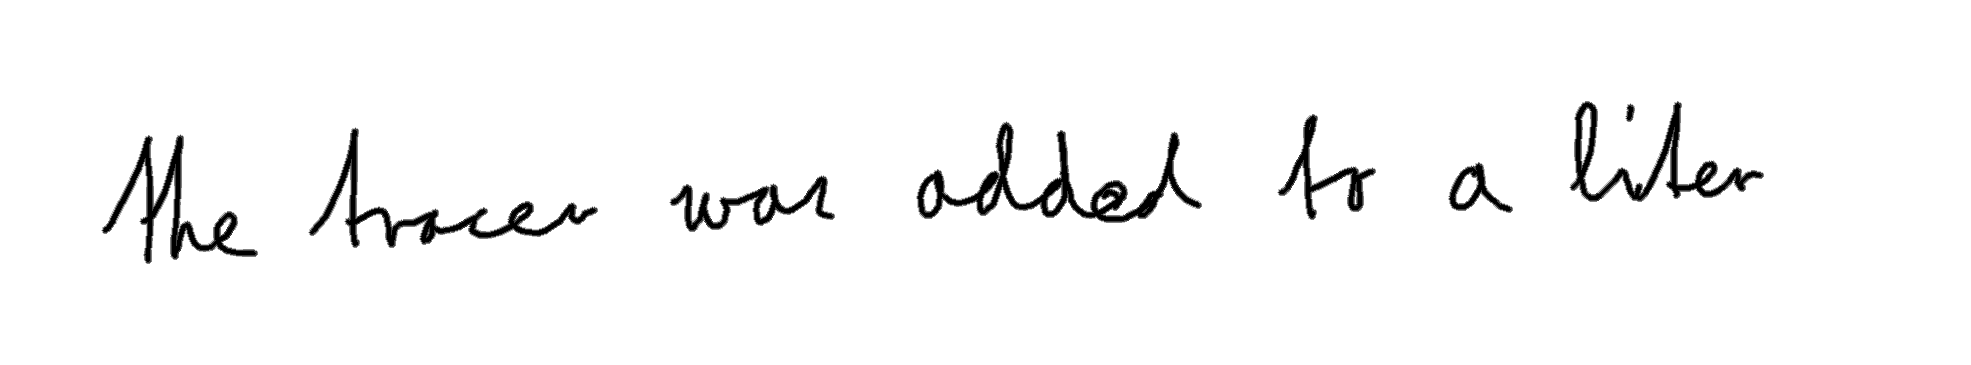 the tracer was added to a liter